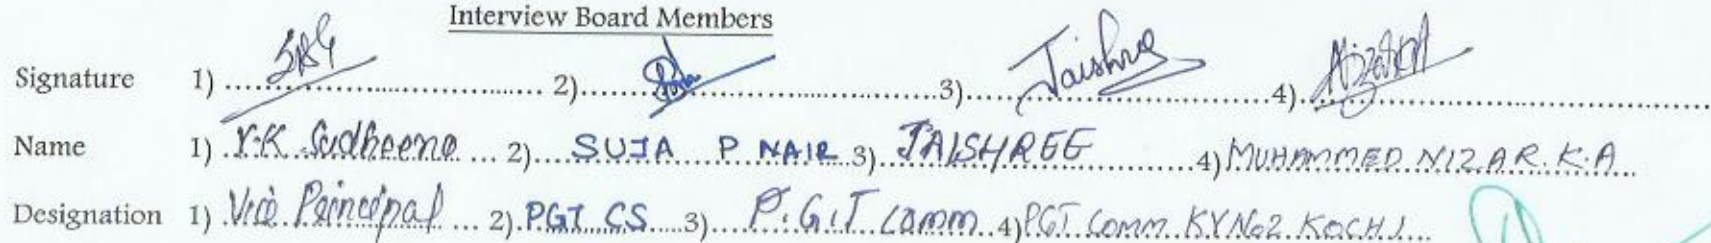 Interview Board Members
Signature 1) 2) 3) Jaishree 4)
Name 1) Y.K Sudheena 2) SUJA P NAIR 3) JAISHREE 4) MUHAMMED NIZAR.K.A
Designation 1) Vice Principal 2) PGT CS 3) P.G.T Comm 4) PGT Comm KV No2 KOCHI